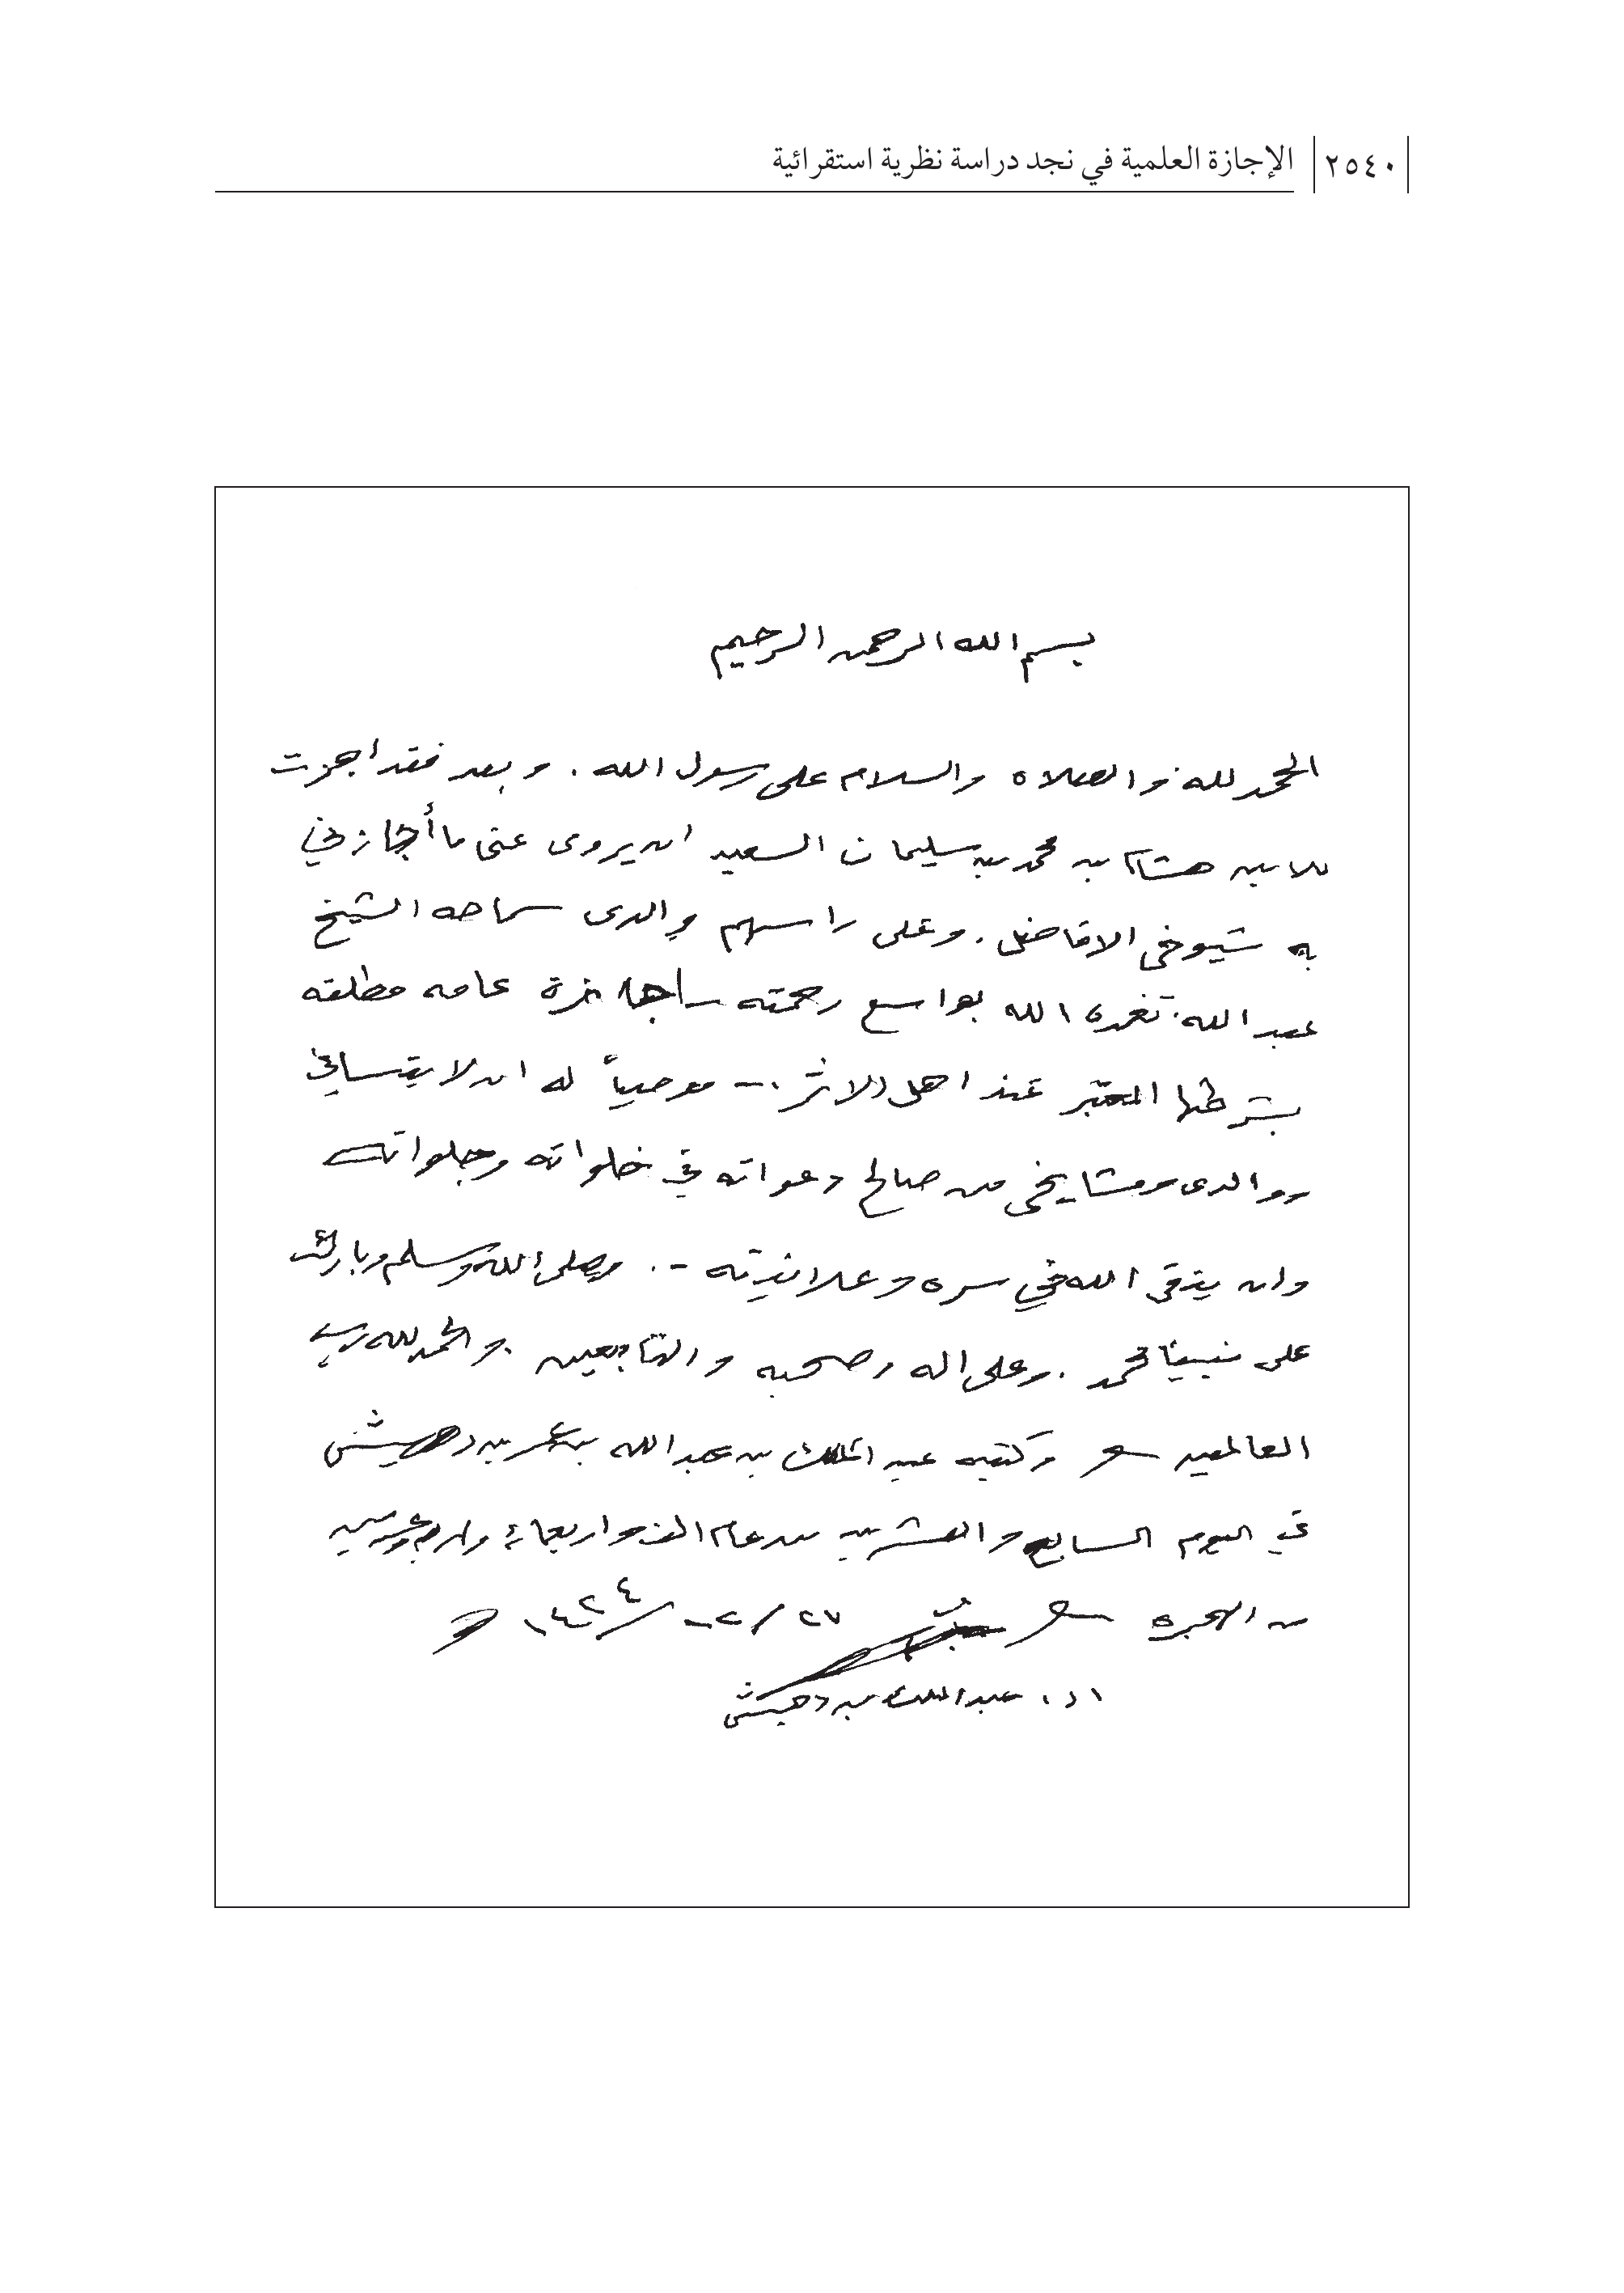 ٢٥٤٠ الإجازة العلمية في نجد دراسة نظرية استقرائية
بسم الله الرحمن الرحيم
الحمد لله والصلاه والسلام على رسول الله . وبعد فقد اجزت
للابن هشام بن محمد بن سليمان السعيد ان يروى عنى ما أجازني
به شيوخي الافاضل . وعلى راسهم والدى سماحه الشيخ
عبد الله تغمده الله بواسع رحمته اجازة عامه مطلقه
بشرطها المعتبر عند اهل الاثر . - موصياً له ان لا ينساني
ووالدى ومشايخي من صالح دعواته في خلواته وجلواته
وان يتقي الله في سره وعلانيته - . وصلى الله وسلم وبارك
على نبينا محمد . وعلى اله وصحبه والتابعين . والحمد لله رب
العالمين وكتبه عبد الملك بن عبد الله بن عمر بن دهيش
في اليوم السابع والعشرين من عام الف واربعمائة واربع وعشرين
من الهجره ٢٧ / ٢ - / ١٤٢٤ هـ
ا . د . عبد الملك بن دهيش